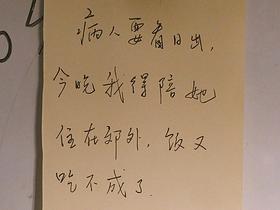 病人要看日出，
今晚我得陪她
住在郊外，饭又
吃不成了.